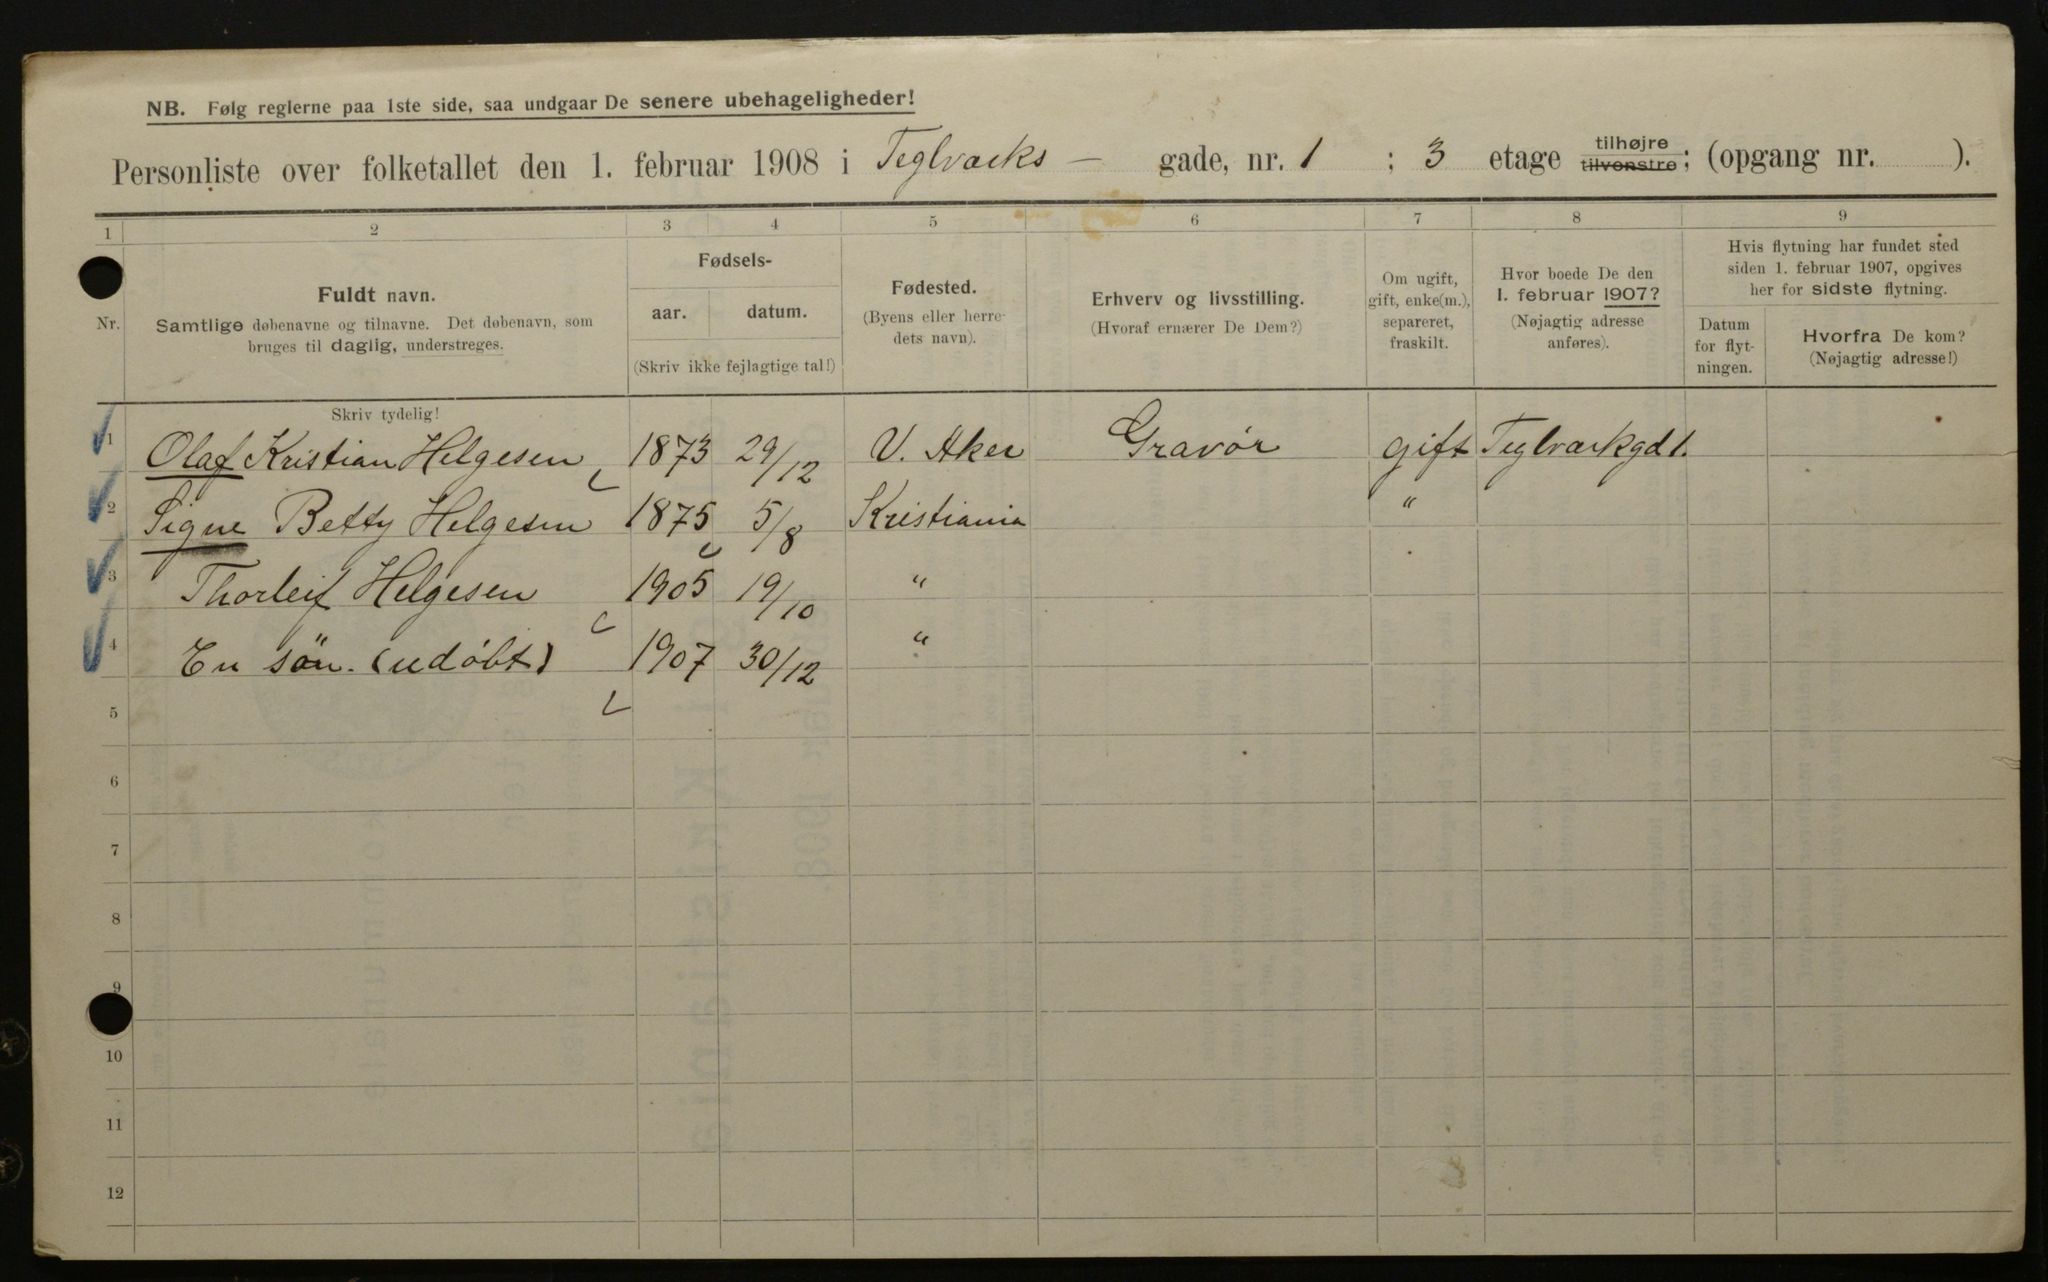 NB. Følg reglerne paa 1ste side, saa undgaar De senere ubehageligheder!
Personliste over folketallet den 1. februar 1908 i Teglværks – gade, nr. 1 ; 3 etage tilhøjre tilvenstre; (opgang nr. ).
1 2 3 4 5 6 7 8 9
Nr.
Fuldt navn.
Samtlige døbenavne og tilnavne. Det døbenavn, som
bruges til daglig, understreges.
Fødsels-
aar. datum.
(Skriv ikke fejlagtige tal!)
Fødested.
(Byens eller herre-
dets navn).
Erhverv og livsstilling.
(Hvoraf ernærer De Dem?)
Om ugift,
gift, enke(m.),
separeret,
fraskilt.
Hvor boede De den
1. februar 1907?
(Nøjagtig adresse
anføres).
Hvis flytning har fundet sted
siden 1. februar 1907, opgives
her for sidste flytning.
Datum
for flyt-
ningen.
Hvorfra De kom?
(Nøjagtig adresse!)
Skriv tydelig!
1 Olaf Kristian Helgesen 1873 29/12 V. Aker Gravør gift Teglværkgd 1.
2 Signe Betty Helgesen 1875 5/8 Kristiania "
3 Thorleif Helgesen 1905 19/10 "
4 En søn. (udøbt) 1907 30/12 "
5
6
7
8
9
10
11
12